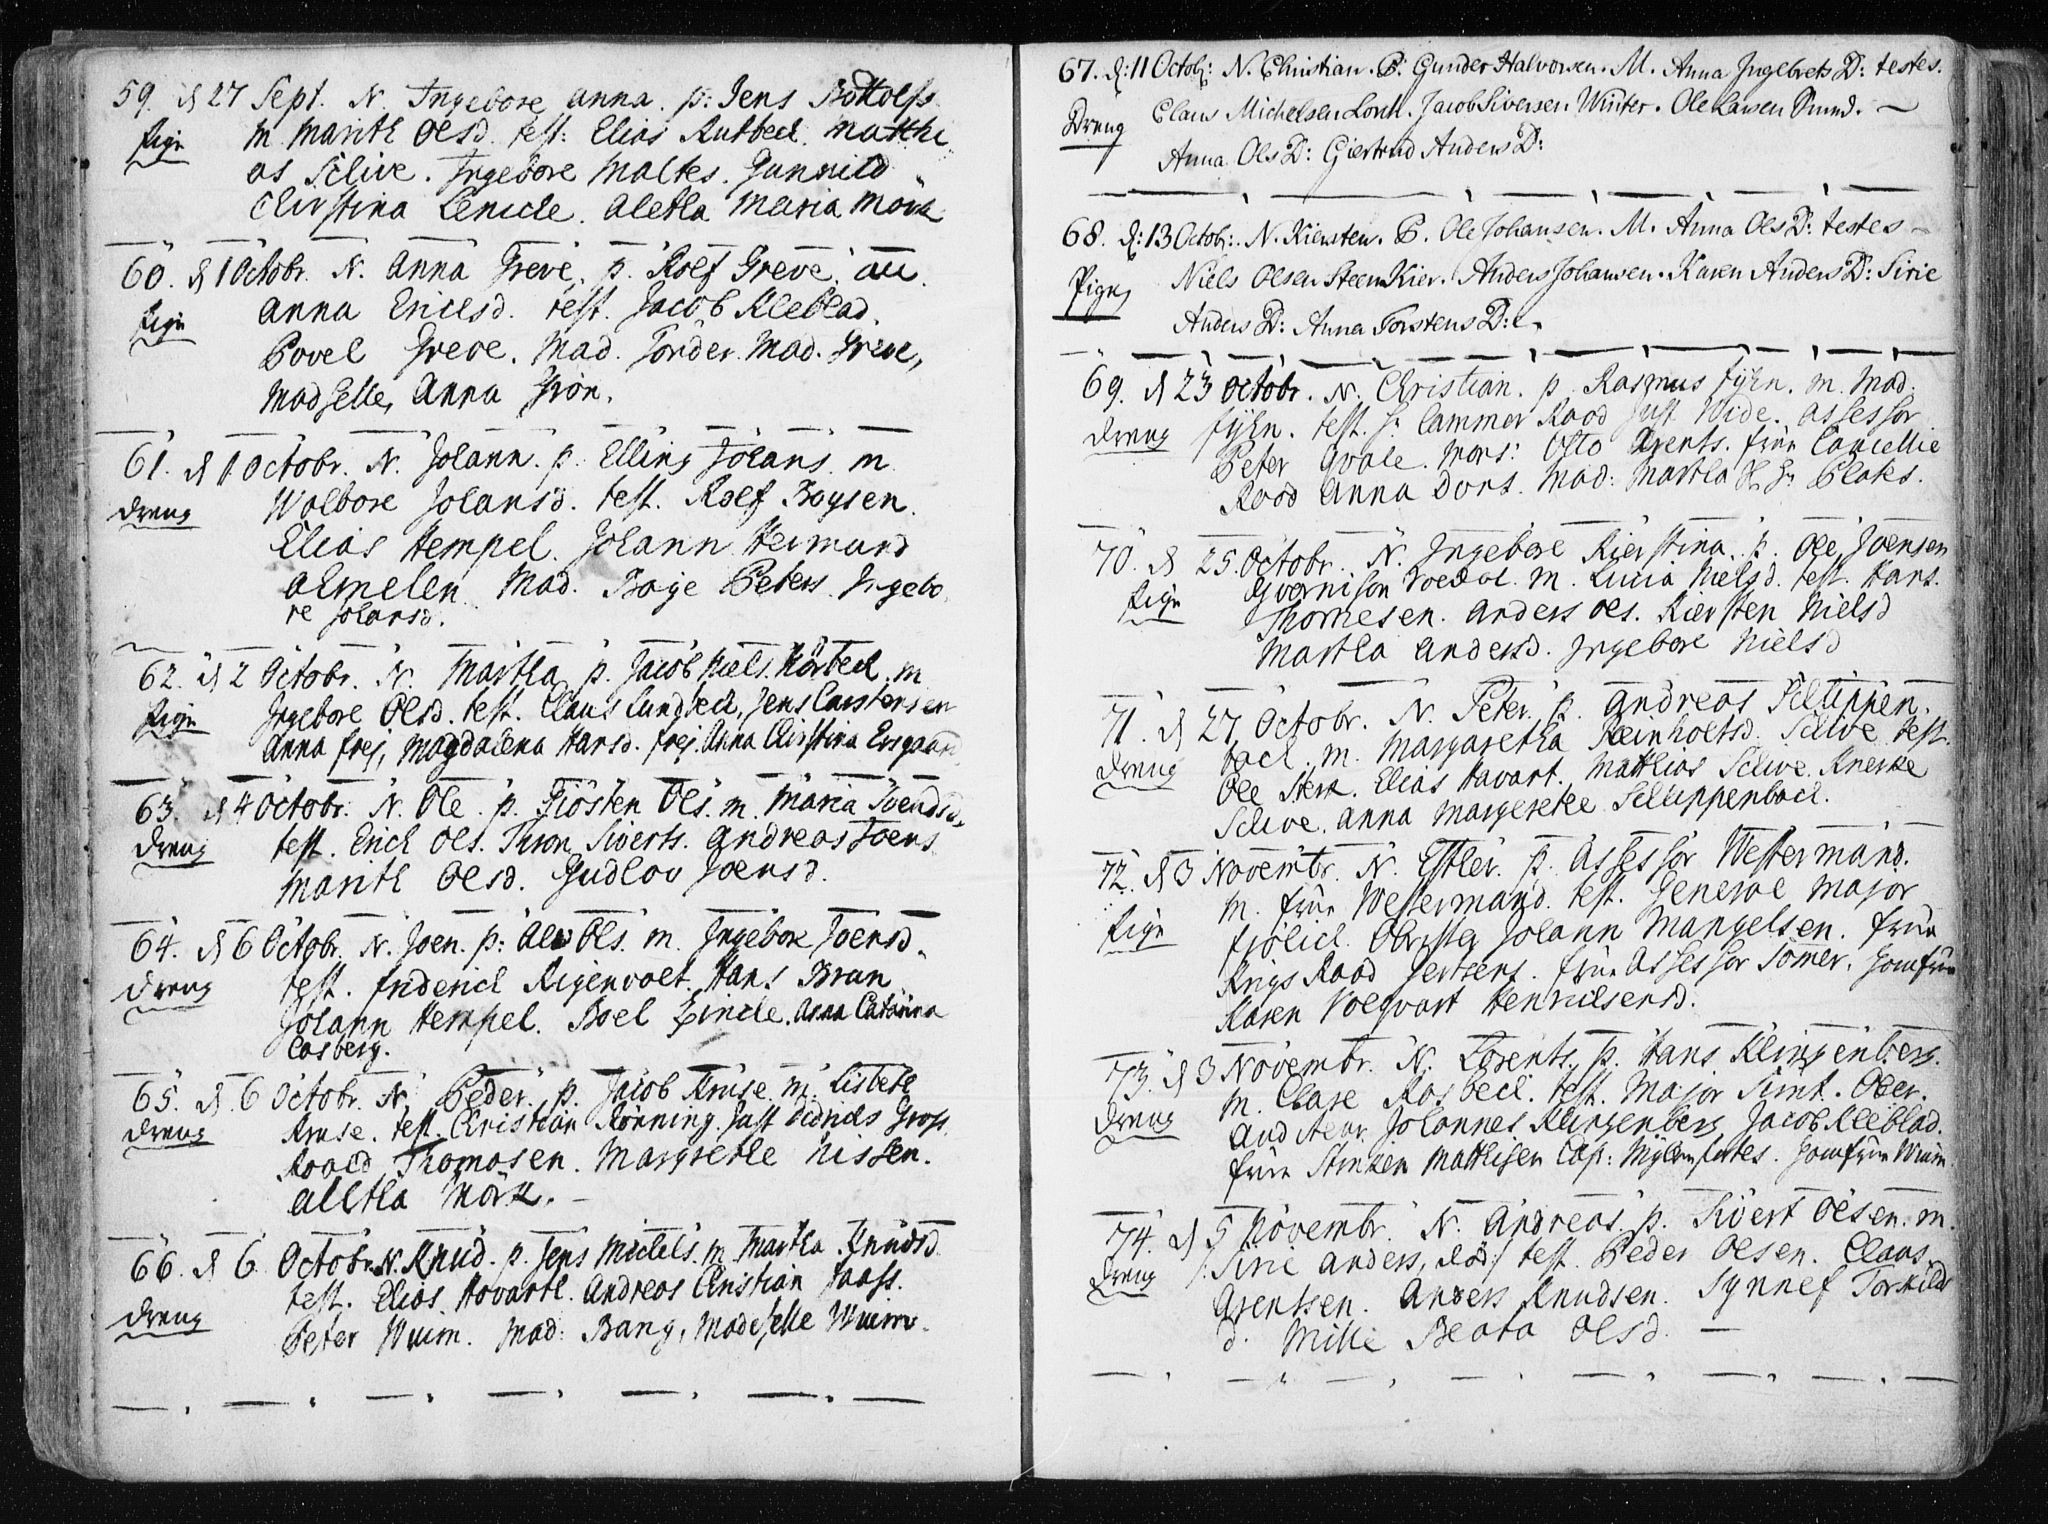 59. d 27 Sept. N. Ingebore anna. p: Jens Bottolfs
Pige M. Marith Olsd. test: Elias Rutbeck. Matthi
as Sclive. Ingebore Maltes. Gunnild
Christina Lenicke. Aletha Maria Mörk
60. d 1 Octobr. N. Anna Greve. p. Rolf Greve. m
Pige Anna Ericksd. test. Jacob Kleblad.
Povel Greve. Mad. Tönder. Mad. Greve,
Madselle, Anna Grön.
61. d 1 Octobr. N. Johann. p. Elling Johans. m
Dreng Wolbore Johansd. test. Rolf Boysen.
Elias Hempel. Johann Hermand
Ahmelen. Mad. Boye Peters. Ingebo
re Johansd.
62. d 2 Octobr. N. Martha p. Jacob Niels. Hörbeck. m
Pige Ingebore Olsd. test. Claus Lundbeck, Jens Carstensen
Anna frej, Magdalena Hansd. frej. Anna Christina Ersgaard
63. d 4 Octobr. N. Ole. p. Tiösten Ols. m. Maria Svendsd.
Dreng test. Erich Ols. Thron Siverts. Andreas Joens
Marith Olsd. Gudlov Joensd.
64. d 6 Octobr. N. Joen. p: Ols. m. Ingebore Joensd.
Dreng test. friderich Rigenvolt. Hans Brun
Johann Hempel. Boel Zincke. Anna Catarina
Casberg.
65. d. 6 Octobr. N. Peder. p. Jacob Kruse. m. Lisbeth
Dreng Kruse. test. Christian Rönning. Just Didricks Gross.
Roald Thomasen. Margrethe Nissen.
Alltha Mörk. —
66. d 6 Octobr. N. Knud. p. Jens Michels. m. Martha. Knudsd
Dreng test. Elias Hovarth. Andreas Christian Haass.
Peter Wuim. Mad: Bang, Madeselle Wuims.
67. d: 11 Octobr: N. Christian. P: Gunder Halvorsen. M. Anna Ingebrets D: testes.
Dreng Claus Michelsen Lorck. Jacob Siversen Winter. Ole Larsen Smed. ~
Anna Ols D: Giertrud Anders D:
68. d: 13 Octobr: N. Kiersten. P. Ole Johansen. M. Anna Ols D: testes ~
Pige Niels Olsen Steen Kier. Anders Johansen. Karen Anders D: Sirie
Anders D: Anna Torstens D: ~
69. d 23 Octobr. N. Christian. p. Rasmus fyhn. m. Mad.
Dreng fyhn. test. Hr Cammer Raad Just Wide. Assessor
Peter Qvale. Mons: Otto Arents. frue Cancellie
Raad Anna Dons. Mad: Martha Ploks.
70. d 25. Octobr. N. Ingebore Kierstina. p. Ole Joensen
Pige Gvarnison m. Lucia Nielsd. test. Hans
Thomesen. Anders Ols. Kiersten Nielsd
Martha Andersd. Ingebore Nielsd
71. d 27. Octobr. N. Peter. p. Andreas Schlippen.
Dreng bach. m. Margaretha Reinholtsd. Sclive. test.
Ole Sterk. Elias Havart. Matthias Sclive. Anerke
Sclive. Anna Margrethe Schlippenbach.
72. d 3 Novembr. N. Esther. p. Assessor Westermand.
Pige m. frue Westermand. test. General Major
frölich. Obrister Johann Mangelsen. frue
Krigs Raad Hertzens. frue Assessor Tomer. Jomfrue
Karen Volqvart Henrichsensd.
73. d 3 Novembr. N. Lorents. p. Hans Klingenberg.
Dreng m. Clare Rosbech. test. Major Simt. Ober.
Auditeur Johannes Klingenberg. Jacob Kleblad.
frue Stinken Matthisen Cap: Jomfrue Wuim
74. d 5 Novembr. N. Andreas. p. Sivert Olsen. m.
Dreng /: Sirie Anders, död:/ test. Peder Olsen. Claus
Arentsen. Anders Knudsen. Synnef Torkilds
d. Mille Beata Olsd. —